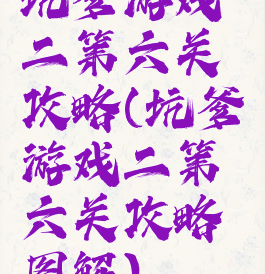 坑爹游戏
二第六关
攻略(坑爹
游戏二第
六关攻略
图解)